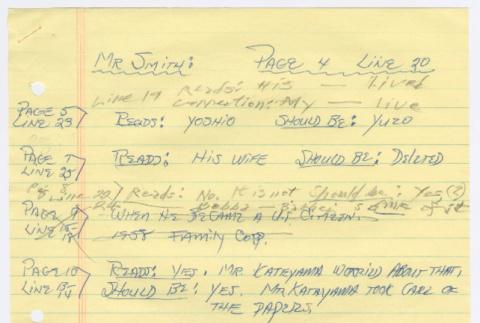 Mr Smith: Page 4 Line 20
Line 19 Reads: His — lived
Correction: My — live
Page 5
Line 23 } Reads: Yoshio Should be: Yuzo
Page 7
Line 25 } Reads: His wife Should be: Deleted
Line 22 } Reads: No. It is not Should be: Yes (?)
Page 9
When he became a U.S. Citizen.
Line
1958 Family Corp.
Page 10 } Reads: Yes, Mr Kateyama worried about that,
Line 13-14 Should be: Yes. Mr. Katayama took care of
the papers